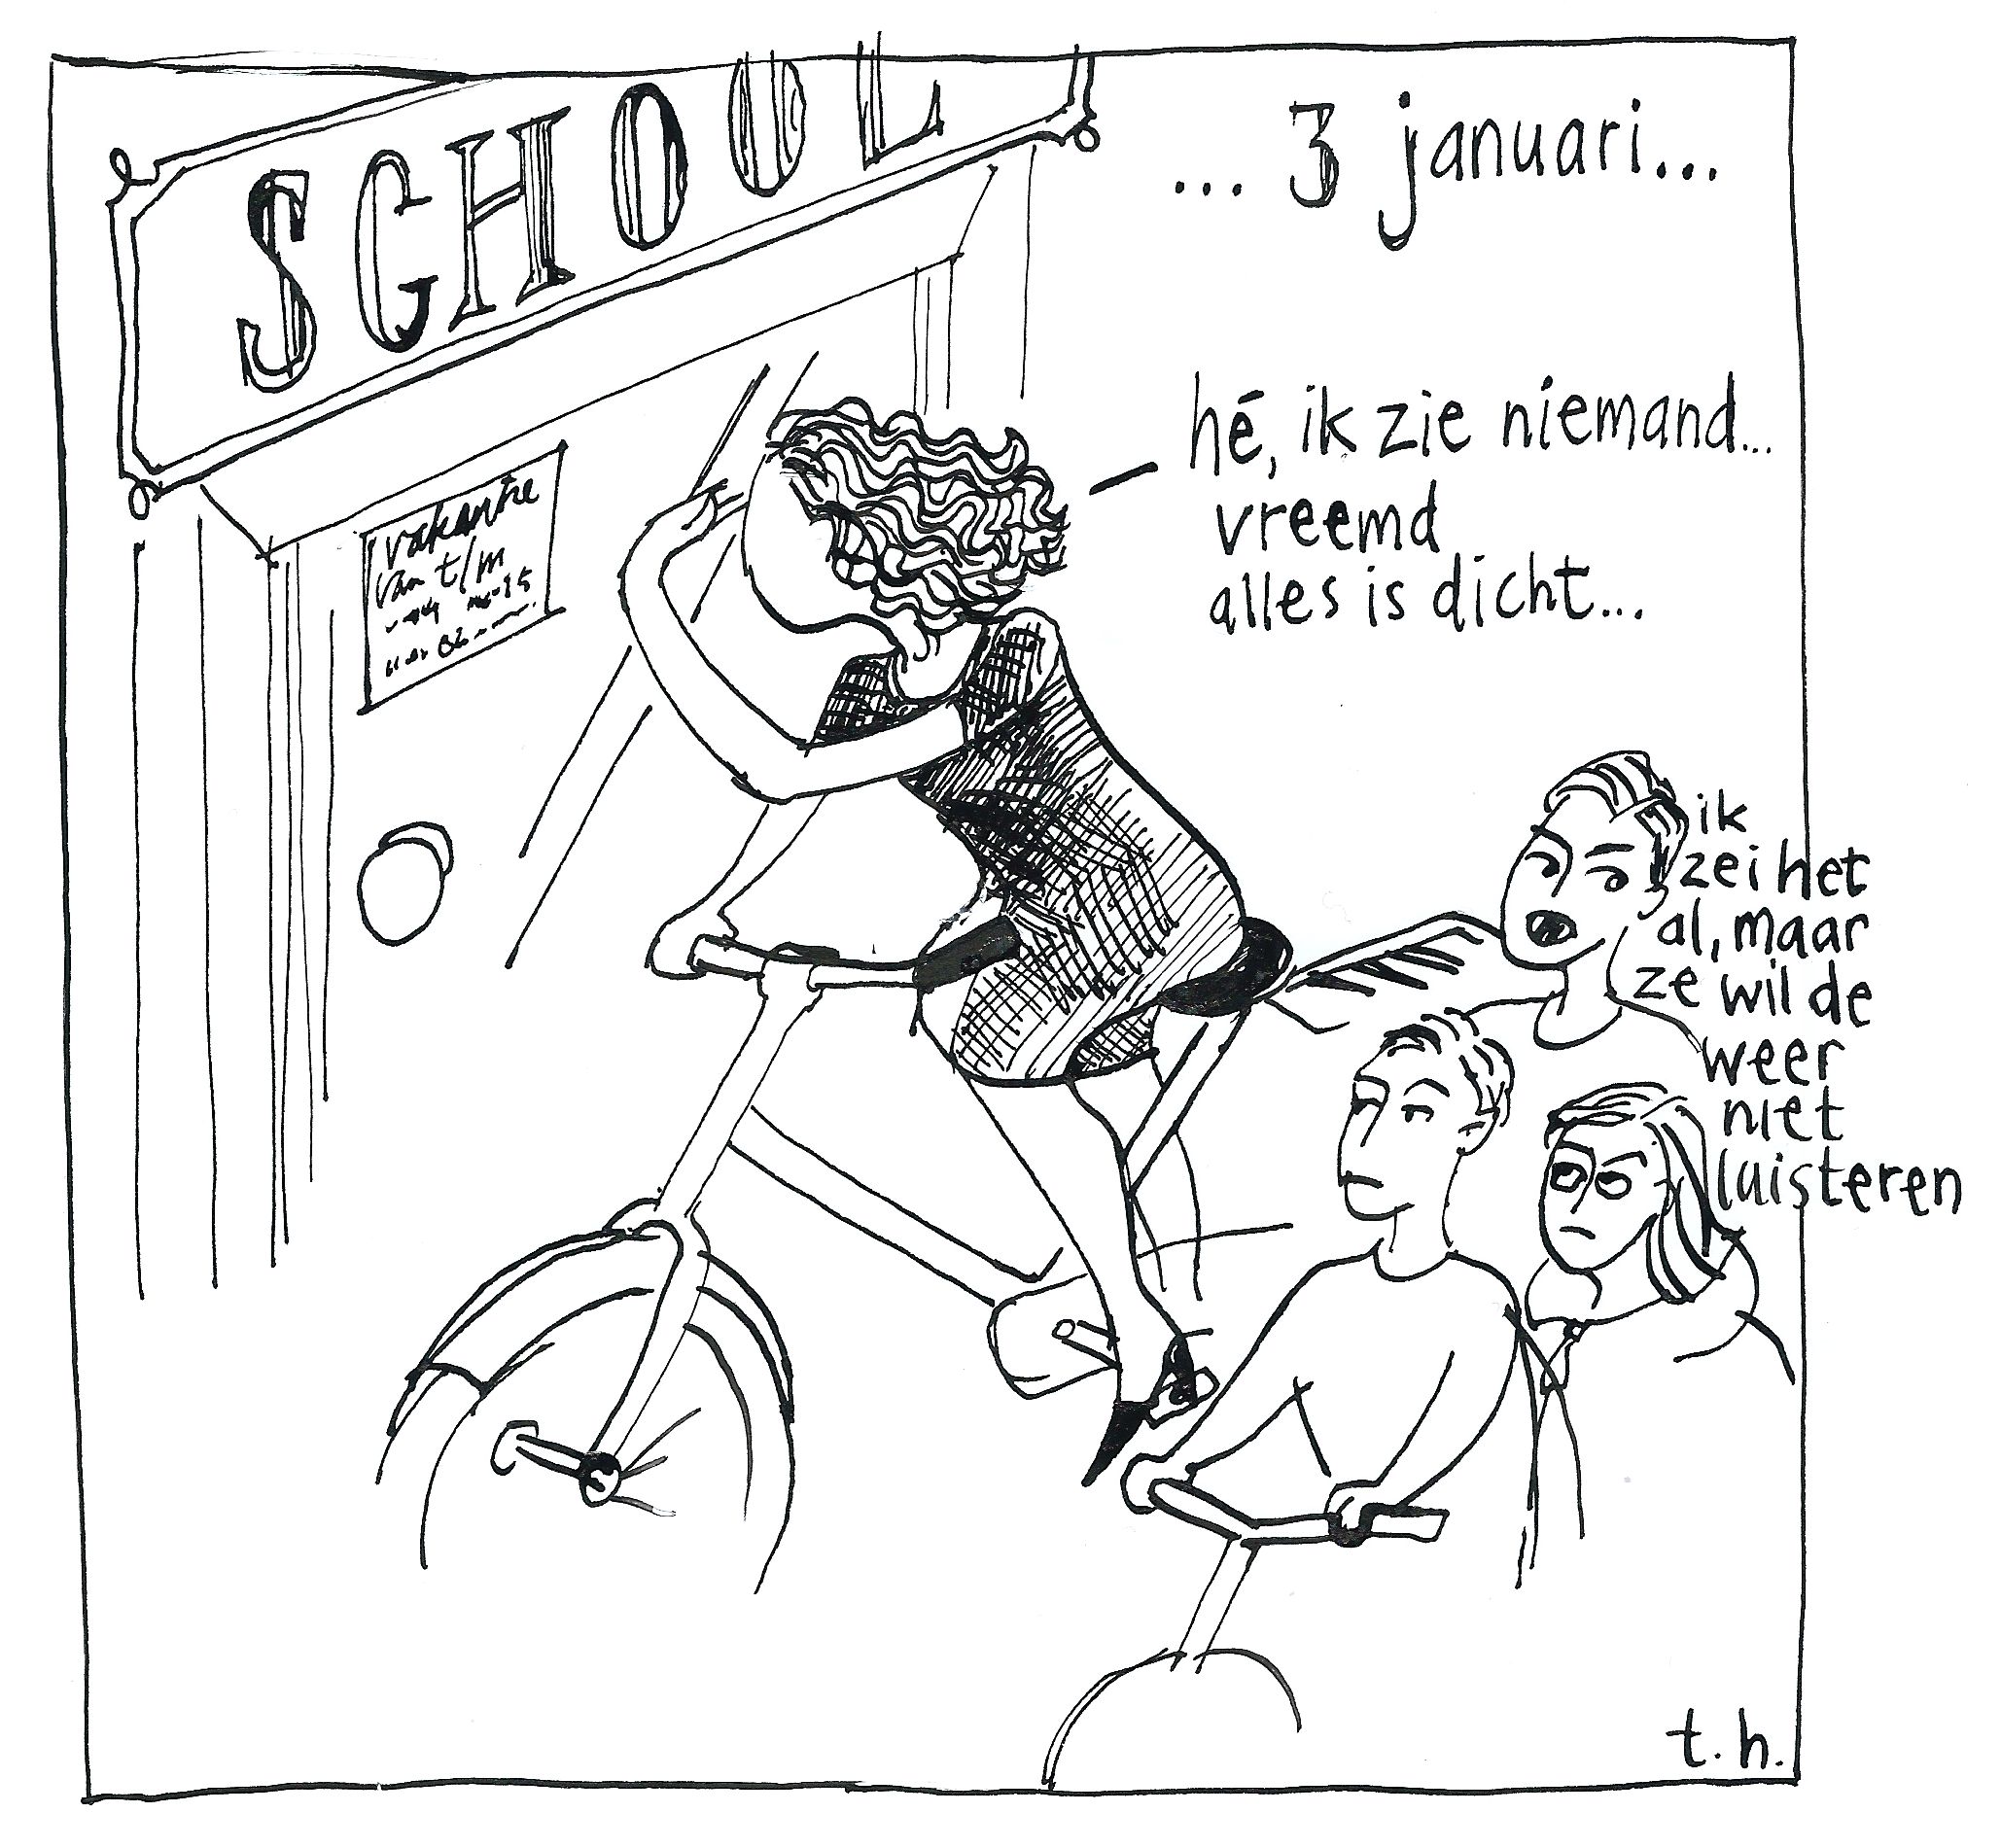 SCHOOL
... 3 januari...
hé, ik zie niemand...
vreemd
alles is dicht...
vakantie
van t/m
ik
zei het
al, maar
ze wilde
weer
niet
luisteren
t.h.